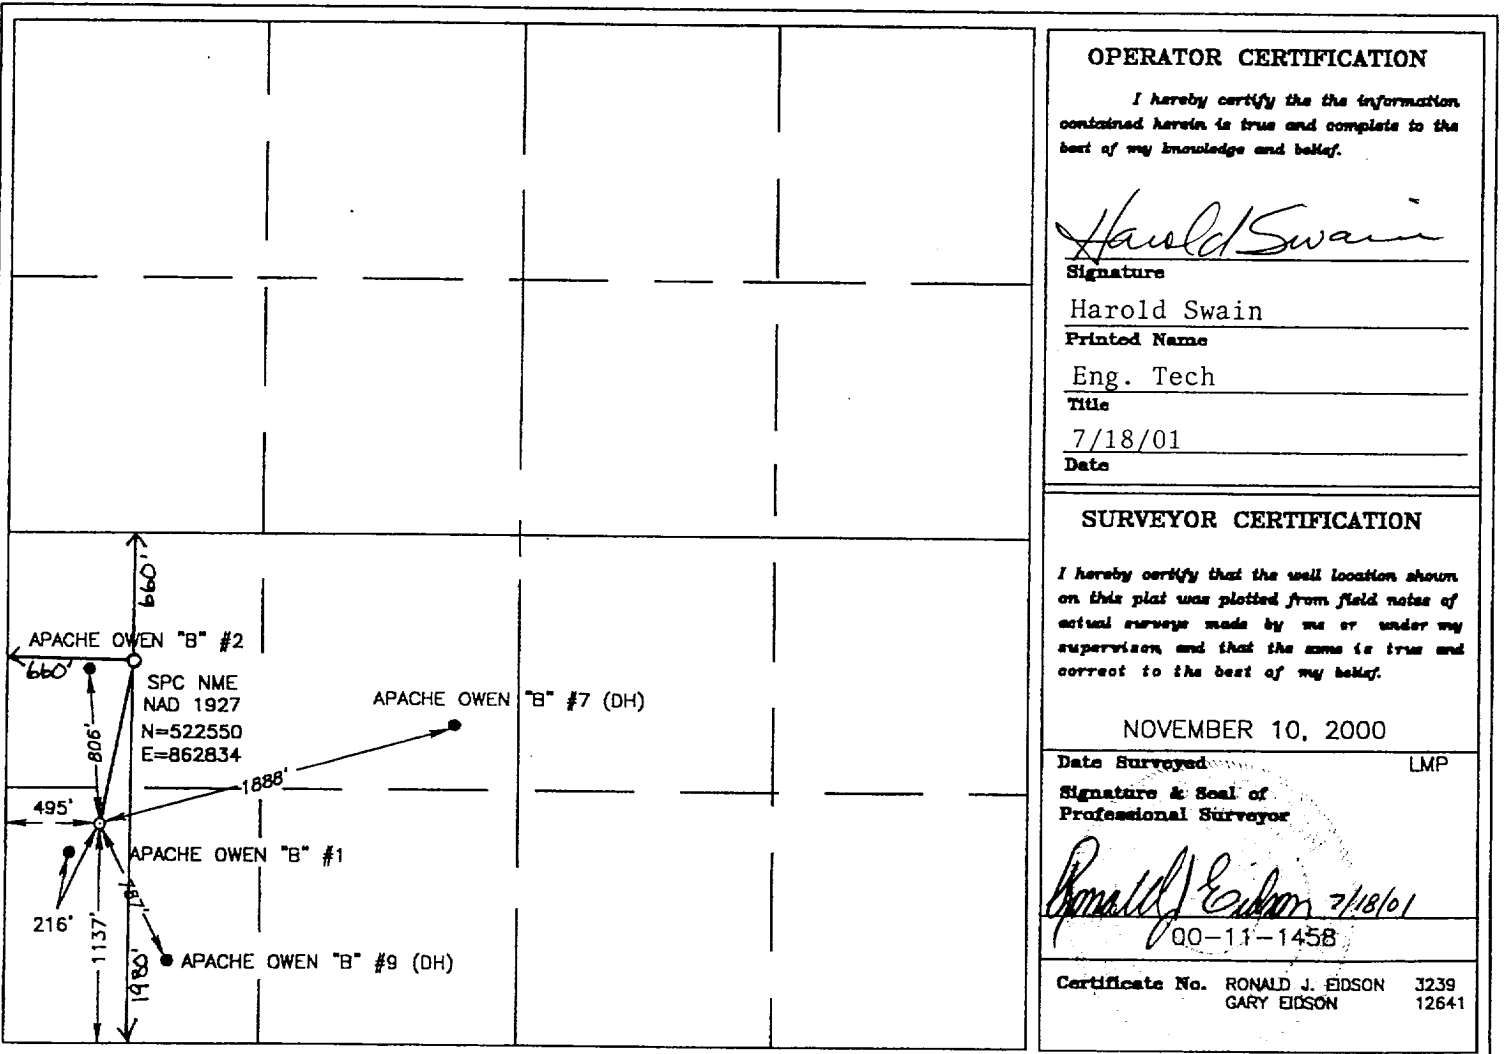 660'
APACHE OWEN "B" #2
660'
SPC NME
NAD 1927
N=522550
E=862834
806'
APACHE OWEN "B" #7 (DH)
1888'
495'
APACHE OWEN "B" #1
216'
787'
1137'
1980'
APACHE OWEN "B" #9 (DH)
OPERATOR CERTIFICATION
I hereby certify the the information
contained herein is true and complete to the
best of my knowledge and belief.
Harold Swain
Signature
Harold Swain
Printed Name
Eng. Tech
Title
7/18/01
Date
SURVEYOR CERTIFICATION
I hereby certify that the well location shown
on this plat was plotted from field notes of
actual surveys made by me or under my
supervison and that the same is true and
correct to the best of my belief.
NOVEMBER 10, 2000
Date Surveyed LMP
Signature & Seal of
Professional Surveyor
Ronald J Eidson 7/18/01
00-11-1458
Certificate No. RONALD J. EIDSON 3239
GARY EIDSON 12641